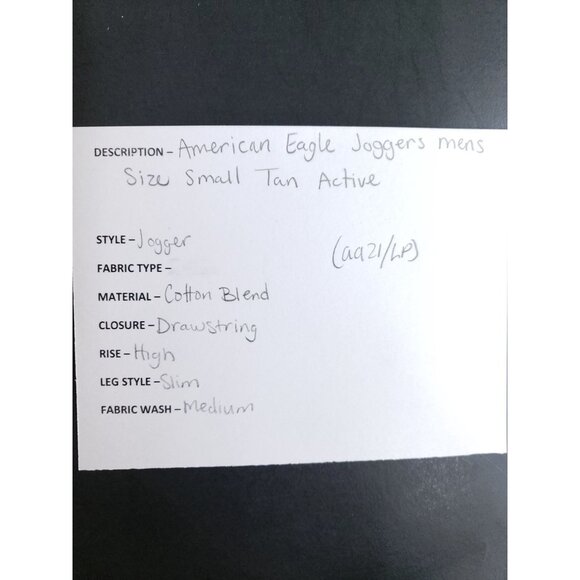 DESCRIPTION – American Eagle Joggers mens
Size Small Tan Active
STYLE – Jogger
(aa21/LP)
FABRIC TYPE –
MATERIAL – Cotton Blend
CLOSURE – Drawstring
RISE – High
LEG STYLE – Slim
FABRIC WASH – Medium